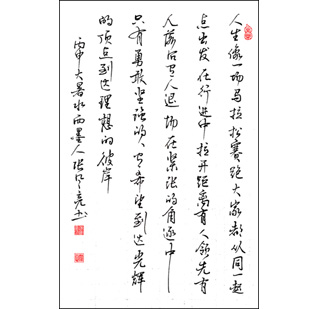 人生像一场马拉松赛跑大家都从同一起
点出发在行进中拉开距离有人领先有
人落后有人退场在紧张的角逐中
只有勇敢坚强的人才有希望到达光辉
的顶点到达理想的彼岸
丙申大暑水西墨人张